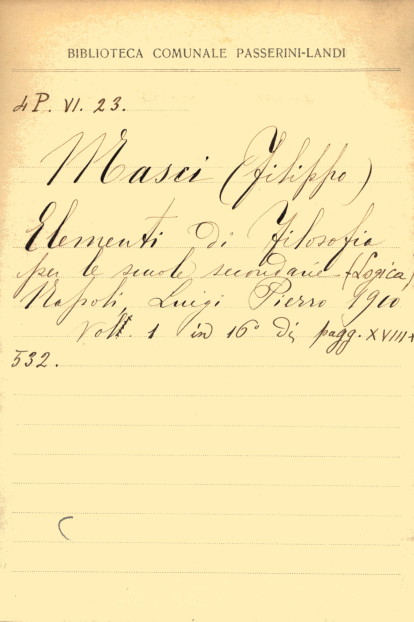 BIBLIOTECA COMUNALE PASSERINI-LANDI
4 P. VI. 23.
Masci (Filippo)
Elementi di Filosofia
per le scuole secondarie (Logica)
Napoli, Luigi Pierro 1910
Vol. 1 in 16° di pagg. XVIII+
532.